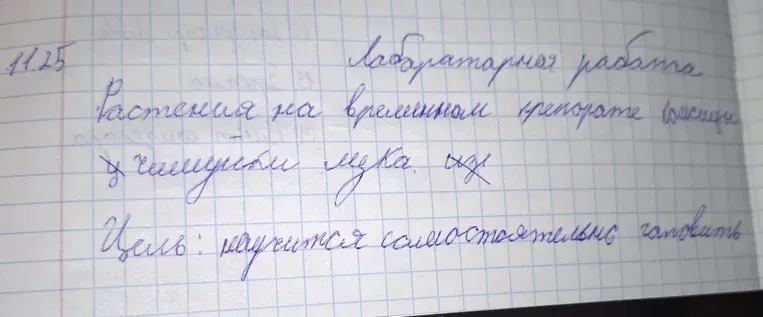 11.25 Лабаратарная работа
Растения на временном препорате кожицы
чешуйки лука.
Цель: научится самостоятельно готовить